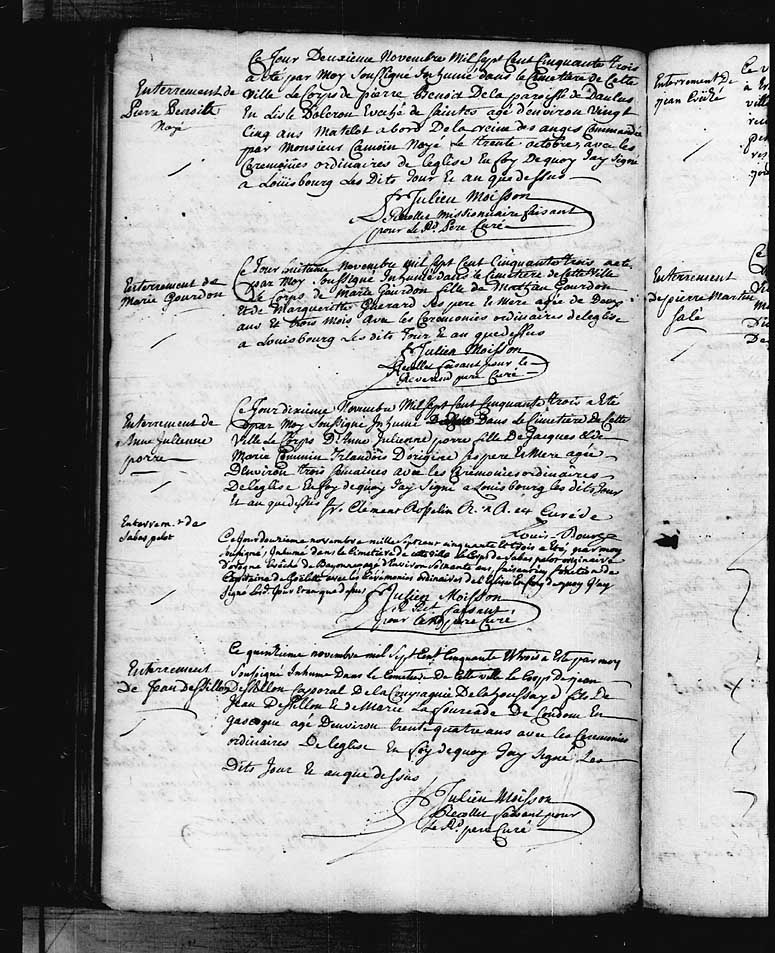 Enterrement de
Pierre Benoist
Noyé
Ce Jour Deuxieme Novembre Mil Sept Cent Cinquante trois
a été par Moy Soussigné Inhumé dans le Cimetiere de Cette
Ville Le Corps de pierre Benoit De la paroisse de
En Lisle Doleron Evesché de Saintes agé d'environ Vingt
Cinq ans Matelot a bord De la reine des anges Commandée
par Monsieur Camoin Noyé Le trente octobre, avec les
Ceremonies ordinaires de leglise En foy De quoy Jay Signé
a Loüisbourg Les Dits Jour Et an que dessus
fr Julien Moisson
Recollet Missionnaire faisant
pour Le Rd. Pere Curé
Enterrement de
Marie Gourdon
Ce Jour huitieme Novembre Mil Sept Cent Cinquante trois a eté
par Moy Soussigné Inhumé dans le Cimetiere de Cette Ville
Le Corps de Marie Gourdon fille de Gourdon
Et de Margueritte Guerard Ses pere et Mere agée de Deux
ans et trois Mois avec les Ceremonies ordinaires de leglise
a Louisbourg Les dits Jour Et an que dessus
fr Julien Moisson
Recollet faisant pour le
Reverend pere Curé
Enterrement de
Anne Julienne
porre
Ce Jour dixieme Novembre Mil Sept Cent Cinquante trois a Eté
par Moy Soussigné Inhumé Dans Le Cimetiere De Cette
Ville Le Corps D'Anne Julienne porre fille De Jacques & de
Marie Irlandois D'origine Ses pere et Mere agée
D'environ trois Semaines avec les Ceremonies ordinaires
De leglise En foy De quoy Jay Signé a Louisbourg les dits Jour
Et an que dessus fr. Clément Rosselin R. Curé de
Louis-Bourg
Enterrem.t de
Sabas pelot
Ce Jour douzieme novembre mille Sept cent cinquante Et trois a Eté, par moy
Soussigné, Inhumé dans le Cimetiere de cette ville le Corps de Sabas pelot originaire
Evêché de Bayonne agé d'Environ Soixante ans, faisant fonction de
Capitaine de Goëlette avec les Cérémonies ordinaires de l'Eglise En foy de quoy J'ay
Signé Les d. Jour Et an que dessus
fr Julien Moisson
R. faisant
pour le Rd pere Curé
Enterrement
de Jean destillon
Ce quinzieme novembre mil Sept Cent Cinquante Et trois a Eté par moy
Soussigné Inhumé Dans le Cimetiere de Cette ville Le Corps de jean
Destillon Caporal De la Compagnie De la houssaye fils de
Jean Destillon Et de Marie De Condom En
gascogne agé D'environ trente quatre ans avec les Ceremonies
ordinaires De leglise En foy de quoy Jay Signé Les
Dits Jour Et an que dessus
fr Julien Moisson
Recollet faisant pour
Le Rd. pere Curé
Enterrement De
jean
Enterrement
de pierre Martin
Salé